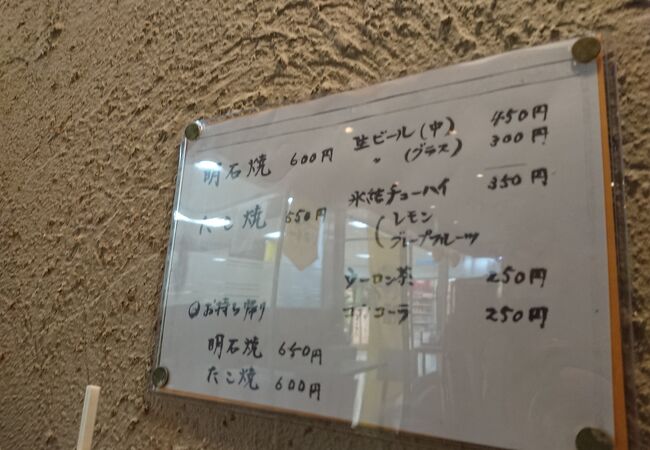 明石焼 600円
たこ焼 550円
お持ち帰り
明石焼 650円
たこ焼 600円
生ビール(中) 450円
〃 (グラス) 300円
氷結チューハイ 350円
(レモン
グレープフルーツ
ウーロン茶 250円
コカコーラ 250円